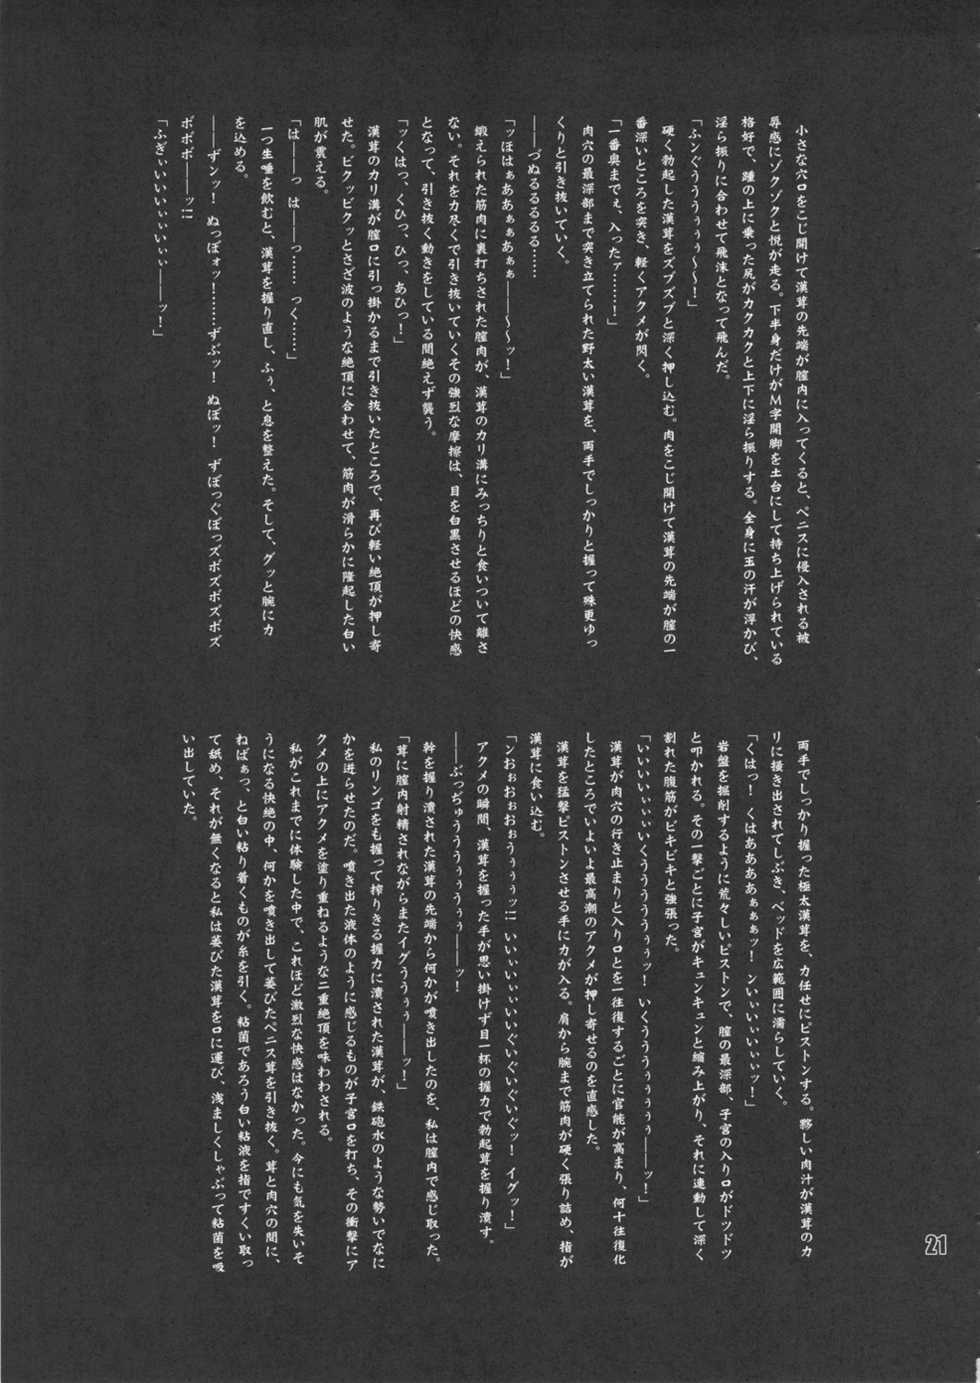 小さな穴口をこじ開けて漢茸の先端が膣内に入ってくると、ペニスに侵入される被
辱感にゾクゾクと悦が走る。下半身だけがM字開脚を土台にして持ち上げられている
格好で、踵の上に乗った尻がカクカクと上下に淫ら振りする。全身に玉の汗が浮かび、
淫ら振りに合わせて飛沫となって飛んだ。
「ふンぐぅううぅぅぅ～～～！」
硬く勃起した漢茸をズブズブと深く押し込む。肉をこじ開けて漢茸の先端が膣の一
番深いところを突き、軽くアクメが閃く。
「一番奥までぇ、入ったァ……！」
肉穴の最深部まで突き立てられた野太い漢茸を、両手でしっかりと握って殊更ゆっ
くりと引き抜いていく。
――づぬるるるる……
「ッほはぁああぁぁあぁぁ――――～～ッ！」
鍛えられた筋肉に裏打ちされた膣肉が、漢茸のカリ溝にみっちりと食いついて離さ
ない。それを力尽くで引き抜いていくその強烈な摩擦は、目を白黒させるほどの快感
となって、引き抜く動きをしている間絶えず襲う。
「ッくはっ、くひっ、ひっ、あひっ！」
漢茸のカリ溝が膣口に引っ掛かるまで引き抜いたところで、再び軽い絶頂が押し寄
せた。ビクッビクッとさざ波のような絶頂に合わせて、筋肉が滑らかに隆起した白い
肌が震える。
「は――っ は――っ…… っく……」
一つ生唾を飲むと、漢茸を握り直し、ふぅ、と息を整えた。そして、グッと腕に力
を込める。
――ずンッ！ ぬっぽォッ！……ずぶッ！ ぬぽッ！ ずぼっぐぼっズボズボズボズ
ボボボ――ッ!!
「ふぎぃいいいぃぃいぃぃ――ッ！」
両手でしっかり握った極太漢茸を、力任せにピストンする。夥しい肉汁が漢茸のカ
リに掻き出されてしぶき、ベッドを広範囲に濡らしていく。
「くはっ！ くはああああぁぁぁッ！ ンいぃいいいぃぃッ！」
岩盤を掘削するように荒々しいピストンで、膣の最深部、子宮の入り口がドツドツ
と叩かれる。その一撃ごとに子宮がキュンキュンと縮み上がり、それに連動して深く
割れた腹筋がビキビキと強張った。
「いいいいぃぃぃいくうううううぅぅッ！ いくうううぅぅぅぅぅ――ッ！」
漢茸が肉穴の行き止まりと入り口とを一往復するごとに官能が高まり、何十往復化
したところでいよいよ最高潮のアクメが押し寄せるのを直感した。
漢茸を猛撃ピストンさせる手に力が入る。肩から腕まで筋肉が硬く張り詰め、指が
漢茸に食い込む。
「ンおぉぉおぉおぉうぅぅぅッ!! いいぃいぃぃいいぐいぐいぐッ！ イグッ！」
アクメの瞬間、漢茸を握った手が思い掛けず目一杯の握力で勃起茸を握り潰す。
――ぶっぢゅううぅぅぅぅぅ――ッ！
幹を握り潰された漢茸の先端から何かが噴き出したのを、私は膣内で感じ取った。
「茸に膣内射精されながらまたイグううぅぅ――ッ！」
私のリンゴをも握って搾りきる握力に潰された漢茸が、鉄砲水のような勢いでなに
かを迸らせたのだ。噴き出た液体のように感じるものが子宮口を打ち、その衝撃にア
クメの上にアクメを塗り重ねるような二重絶頂を味わわされる。
私がこれまでに体験した中で、これほど激烈な快感はなかった。今にも気を失いそ
うになる快絶の中、何かを噴き出して萎びたペニス茸を引き抜く。茸と肉穴の間に、
ねばぁっ、と白い粘り着くものが糸を引く。粘菌であろう白い粘液を指ですくい取っ
て舐め、それが無くなると私は萎びた漢茸を口に運び、浅ましくしゃぶって粘菌を吸
い出していた。
21